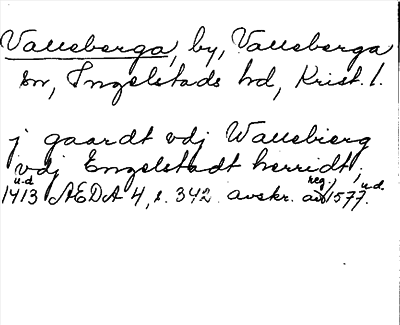 Valleberga, by, Valleberga
sn, Ingelstads hd, Krist. l.
j gaardt vdj Wallebierg
vdj Engelstadt herridt,
u.d. 1413 AEDA 4, s. 342. avskr. av reg., 1577. u.d.